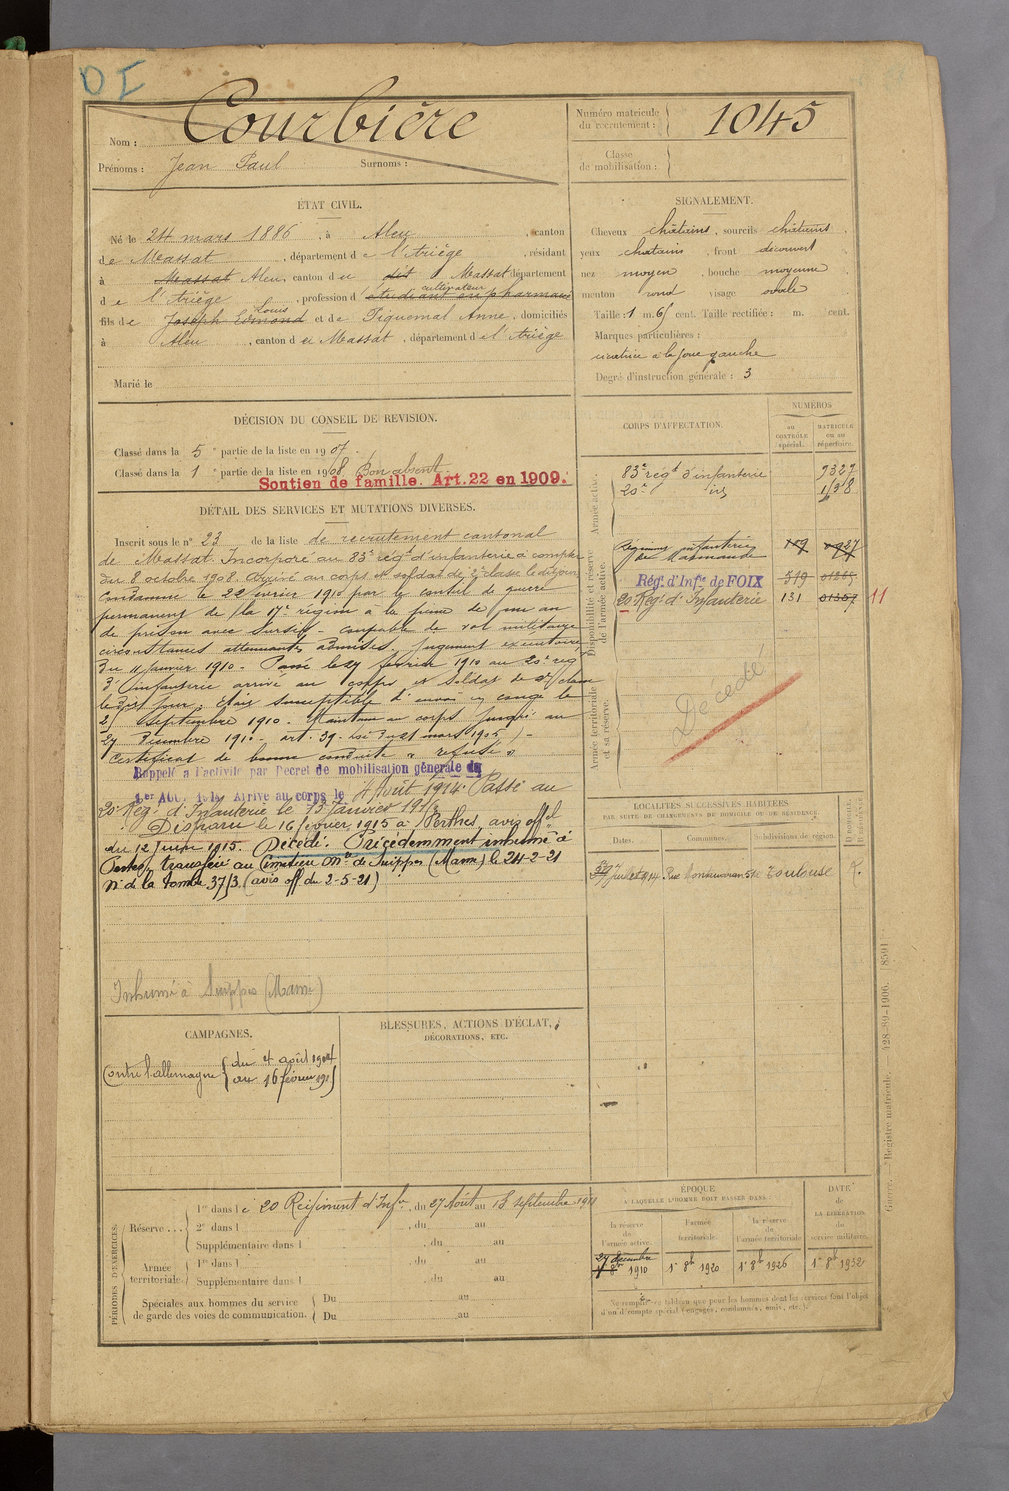 Nom : Courbière
Prénoms : Jean Paul Surnoms :
Numéro matricule du recrutement : 1045
Classe de mobilisation :
ÉTAT CIVIL.
Né le 24 mars 1886, à Aleu, canton
de Massat, département de l'Ariège, résidant
à Massat Aleu, canton de dit Massat département
cultivateur
de l'Ariège, profession d'étudiant en pharmacie
Louis
fils de Joseph Edmond et de Piquemal Anne, domiciliés
à Aleu, canton de Massat, département de l'Ariège
Marié le
SIGNALEMENT.
Cheveux châtains, sourcils châtains
yeux chatains, front découvert
nez moyen, bouche moyenne
menton rond visage ovale
Taille : 1 m. 65 cent. Taille rectifiée : m. cent.
Marques particulières :
cicatrice à la joue gauche
Degré d'instruction générale : 3
DÉCISION DU CONSEIL DE REVISION.
Classé dans la 5e partie de la liste en 1907.
Classé dans la 1e partie de la liste en 1908. Bon absent.
Soutien de famille. Art. 22 en 1909.
DÉTAIL DES SERVICES ET MUTATIONS DIVERSES.
Inscrit sous le n° 23 de la liste de recrutement cantonal
de Massat. Incorporé au 83e régt d'infanterie à compter
du 8 octobre 1908. Arrivé au corps et soldat de 2e classe le dit jour.
Condamné le 22 février 1910 par le conseil de guerre
permanent de la 17e région à la peine de un an
de prison avec sursis - coupable de vol militaire
circonstances atténuantes admises. Jugement exécutoire
du 11 janvier 1910 - Passé le 27 février 1910 au 20e régt
d'infanterie arrivé au corps et soldat de 2e classe
le dit jour, étais susceptible d'envoi en congé le
25 septembre 1910. Maintenu au corps jusqu'au
27 Décembre 1910 - art. 39 - loi du 21 mars 1905 -
Certificat de bonne conduite "refusé"
Rappelé à l'activité par Décret de mobilisation générale du
1er AOUT 1914 Arrivé au corps le 4 Août 1914. Passé au
20e Rég. d'Infanterie le 13 Janvier 1915
Disparu le 16 février 1915 à Perthes, avis offel
du 12 Juin 1915. Décédé. Précédemment inhumé à
Perthes, transféré au Cimetière Nal de Suippes (Marne) le 24-2-21
N° de la tombe 3713. (avis off du 2-5-21)
Inhumé à Suippes (Marne)
CORPS D'AFFECTATION.
NUMÉROS
au CONTRÔLE spécial.
MATRICULE ou au répertoire.
Armée active.
83e régt d'infanterie 9327
20e d° 1138
Disponibilité et réserve de l'armée active.
Régiment infanterie de Marmande
Rég. d'Infie de FOIX 519 01265
20 Rég. d'Infanterie 131 01367 11
Armée territoriale et sa réserve.
Décédé
LOCALITÉS SUCCESSIVES HABITÉES
PAR SUITE DE CHANGEMENTS DE DOMICILE OU DE RÉSIDENCE.
Dates. Communes. Subdivisions de région. D DOMICILE. R RÉSIDENCE.
Toulouse R.
CAMPAGNES.
Contre l'allemagne
du 4 août 1914
au 16 février 1915
BLESSURES, ACTIONS D'ÉCLAT,
DÉCORATIONS, ETC.
PÉRIODES D'EXERCICES.
Réserve ...
1re dans le 20 Régiment d'Infie, du 27 Août au 18 septembre 1911
2e dans l , du au
Supplémentaire dans l , du au
Armée territoriale.
1re dans l , du au
Supplémentaire dans l , du au
Spéciales aux hommes du service de garde des voies de communication.
Du au
Du au
ÉPOQUE
A LAQUELLE L'HOMME DOIT PASSER DANS :
la réserve de l'armée active.
l'armée territoriale.
la réserve de l'armée territoriale
DATE de LA LIBÉRATION du service militaire.
27 décembre
1 8bre 1910
1er 8bre 1920
1er 8bre 1926
1er 8bre 1932
Ne remplir ce tableau que pour les hommes dont les services font l'objet
d'un décompte spécial (engagés, condamnés, omis, etc.).
Guerre. — Registre matricule. 428-89-1906. [8591]